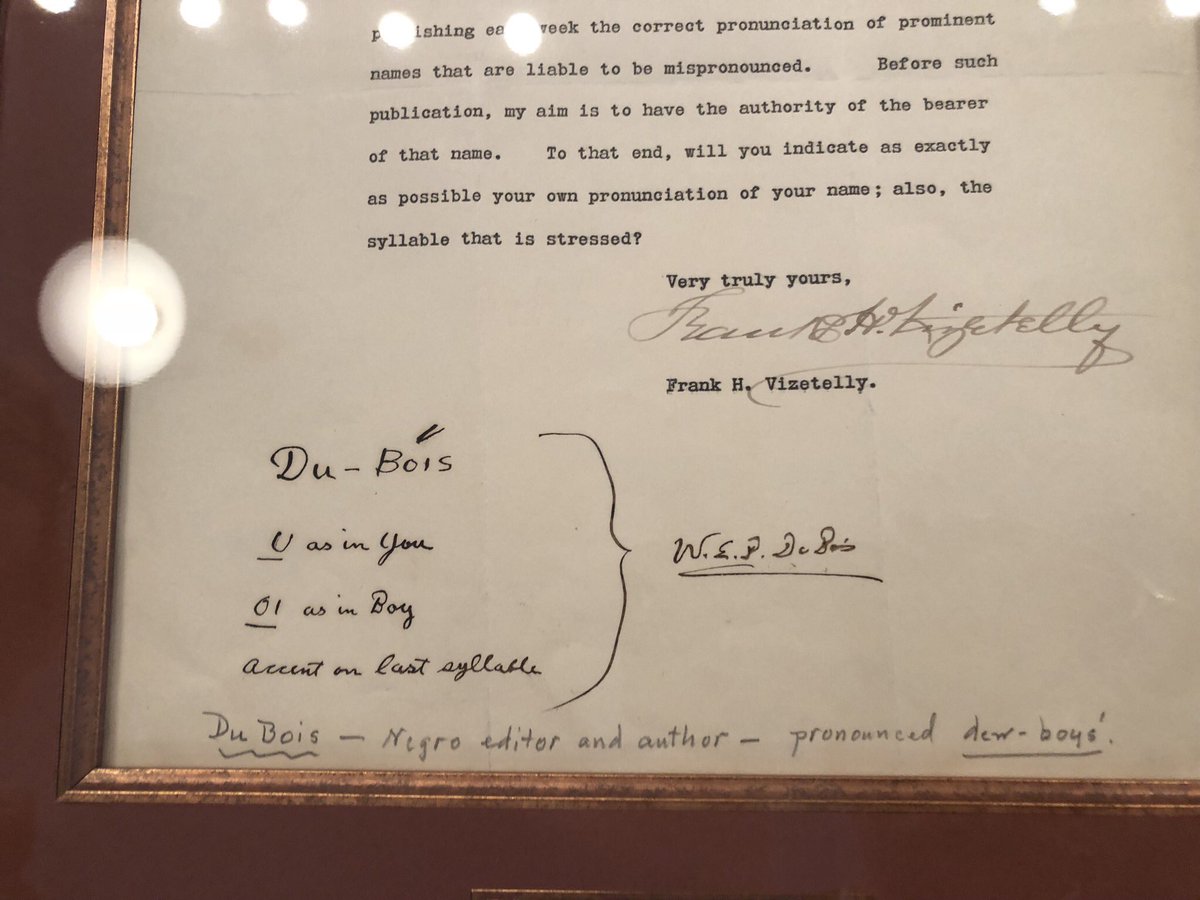 ishing week the correct pronunciation of prominent
names that are liable to be mispronounced. Before such
publication, my aim is to have the authority of the bearer
of that name. To that end, will you indicate as exactly
as possible your own pronunciation of your name; also, the
syllable that is stressed?
Very truly yours,
Frank H. Vizetelly
Frank H. Vizetelly.
Du-Bois
U as in You
OI as in Boy
accent on last syllable
W.E.B. Du Bois
Du Bois — Negro editor and author — pronounced dew-boys'.